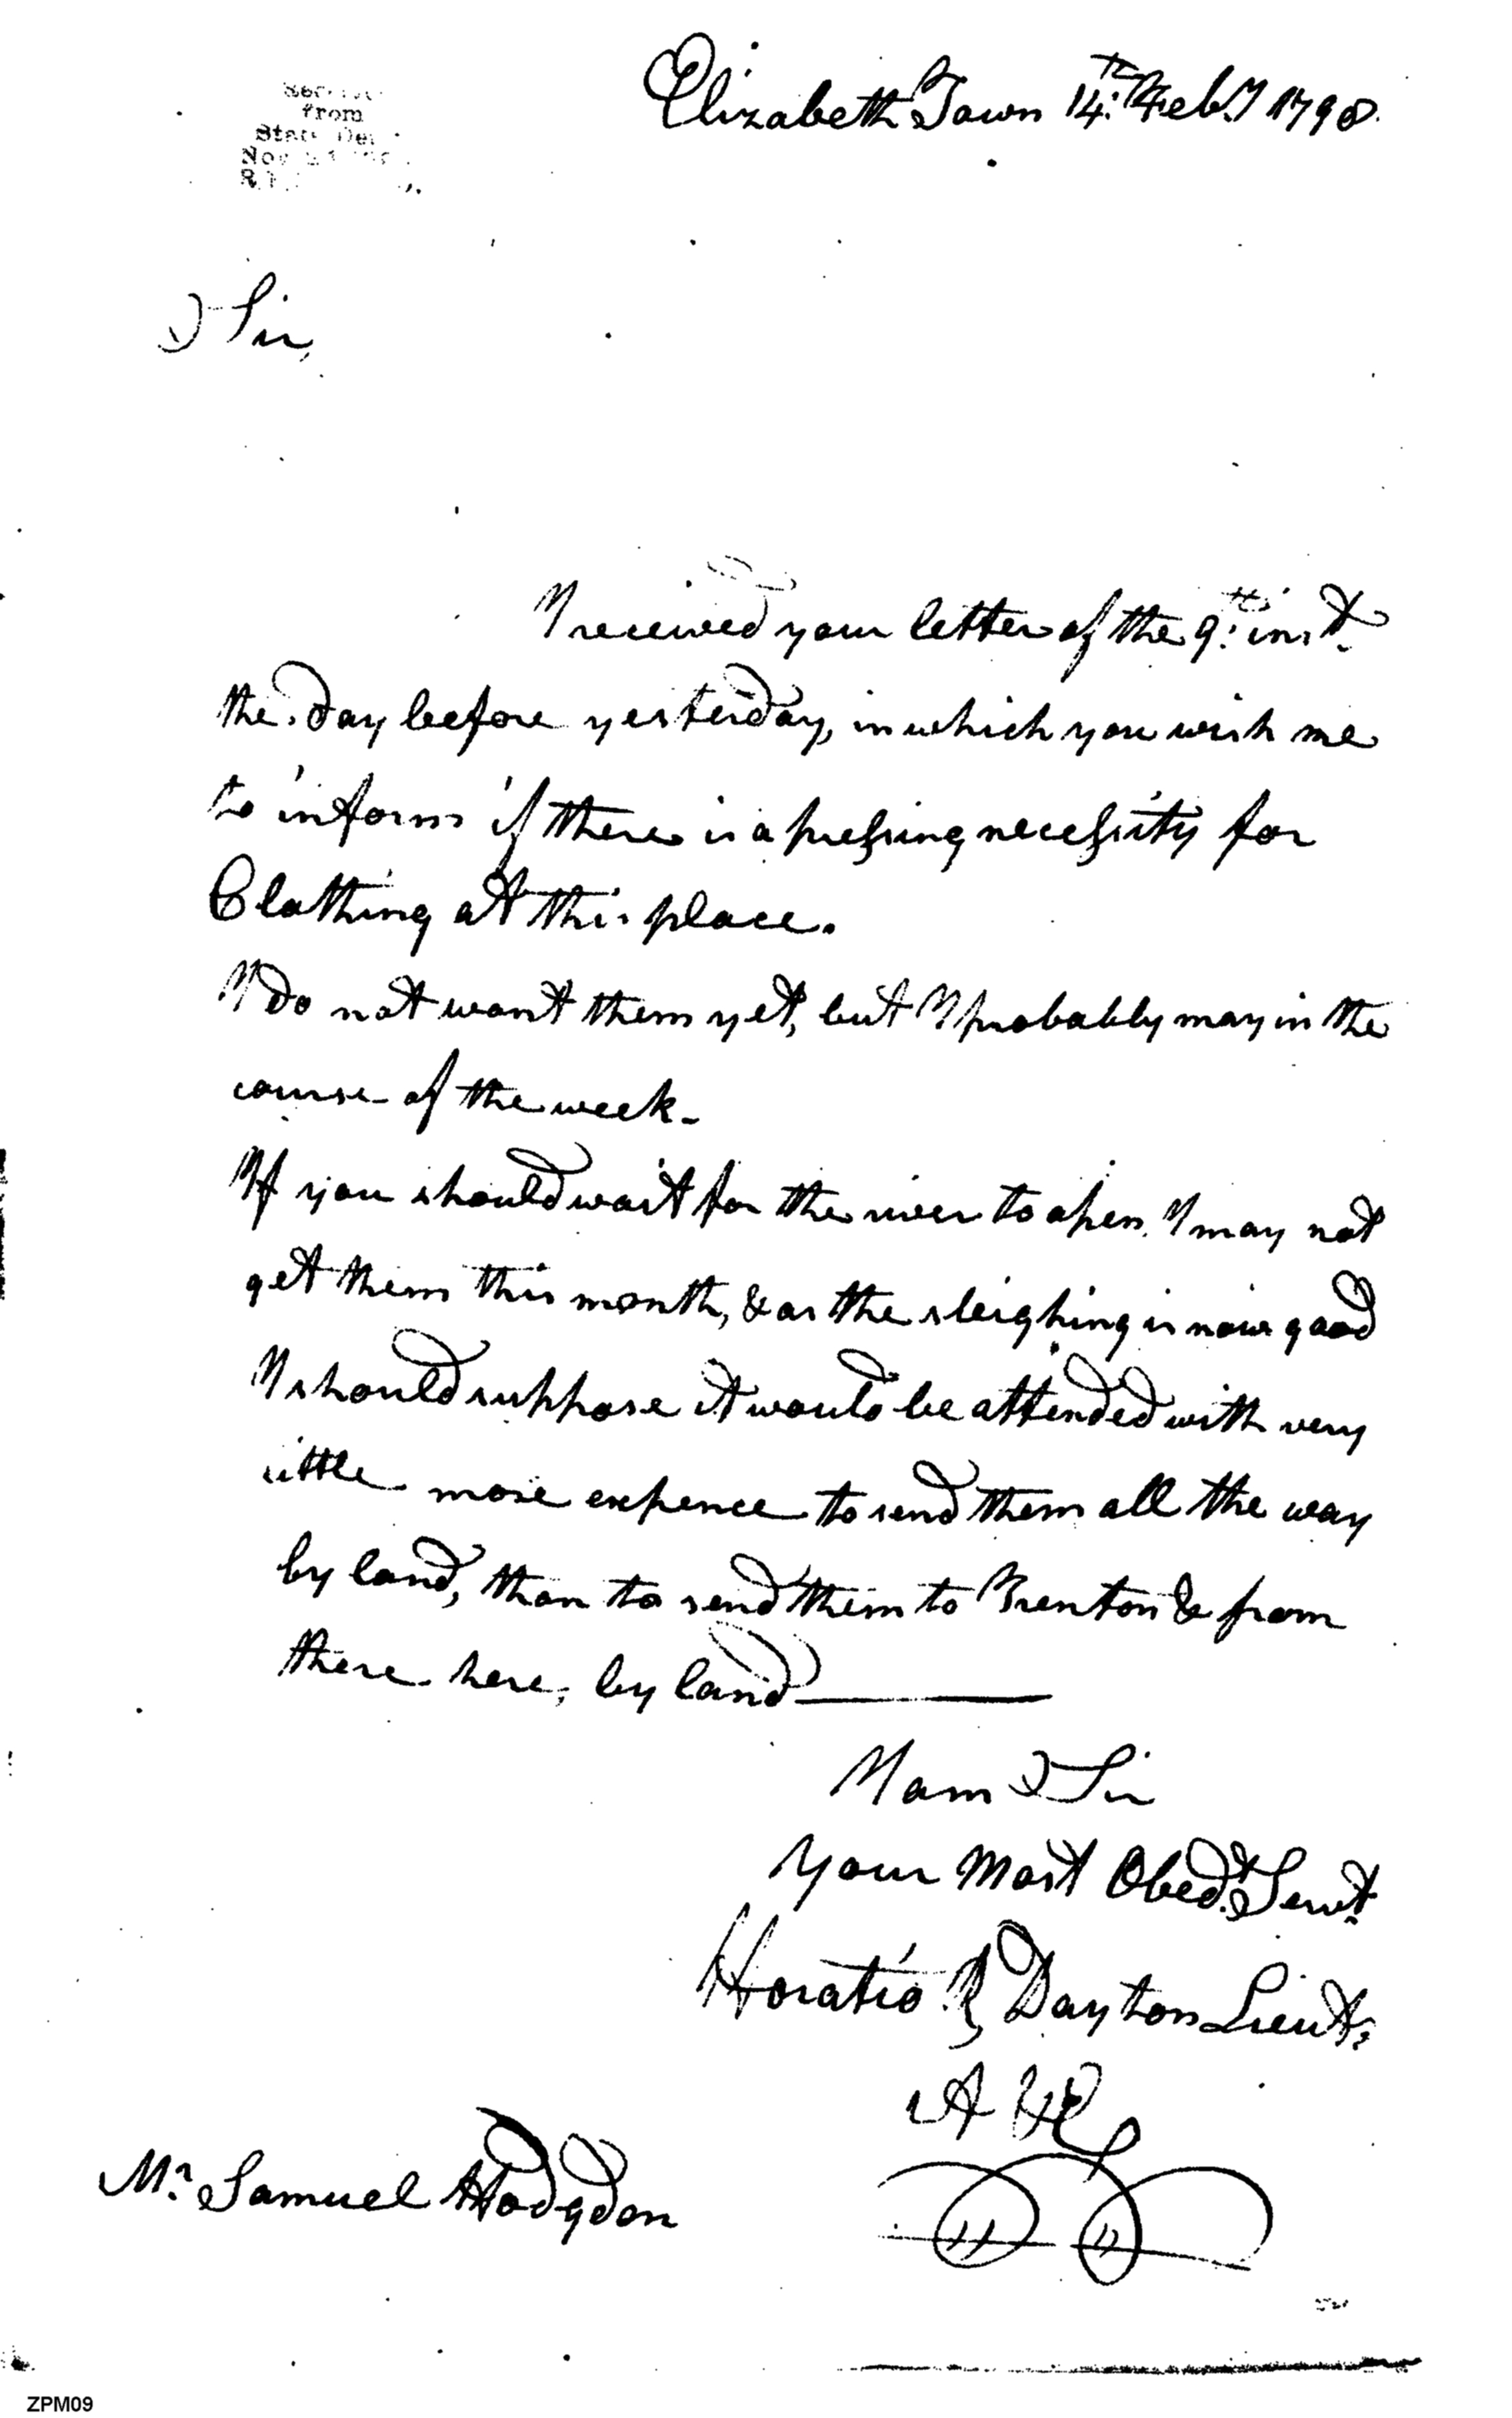 Elizabeth Town 14th Feby 1798.
from
Sir,
I received your letter of the 9th inst
the day before yesterday, in which you wish me
to inform if there is a pressing necessity for
Clothing at this place.
I do not want them yet, but I probably may in the
course of the week.
If you should wait for the river to open I may not
get them this month, & as the sleighing is now good
I should suppose it would be attended with very
little more expence to send them all the way
by land, than to send them to Trenton & from
there here, by land
I am Sir
Your Most Obedt Servt
Horatio R Dayton Lieut.
Mr. Samuel Hodgdon
ZPM09